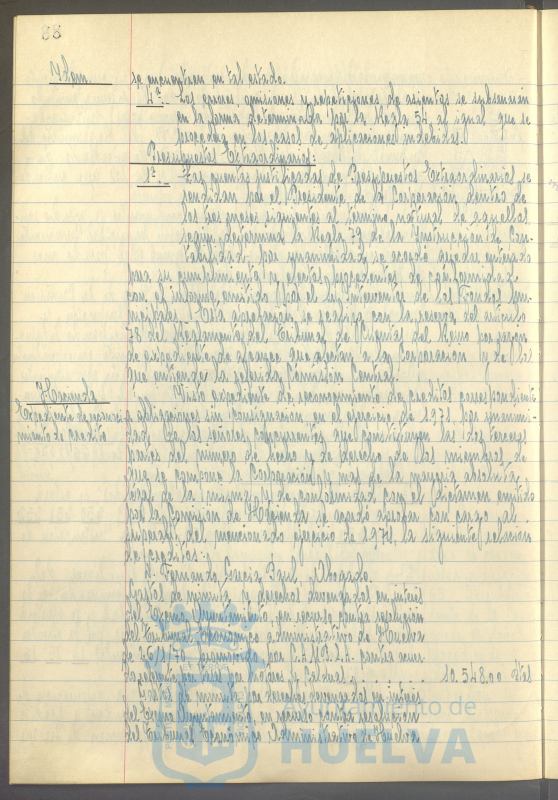 88
Idem.
se encuentran en tal estado.
4ª.- Los errores, omisiones y repeticiones de asientos se subsanarán
en la forma determinada por la Regla 54, al igual que se
procederá en los casos de aplicaciones indebidas.
Presupuestos Extraordinarios:
1ª.- Las cuentas justificadas de Presupuestos Extraordinarios se
rendirán por el Presidente de la Corporación, dentro de
los tres meses siguientes al término natural de aquellos
según determina la Regla 79 de la Instrucción de Con-
tabilidad, por unanimidad, se acordó quedar enterado
para su cumplimiento y efectos procedentes de conformidad
con el informe emitido por el Sr. Interventor de los Fondos mu-
nicipales. Esta aprobación se realiza con la reserva del artículo
78 del Reglamento del Tribunal de Cuentas del Reino por razón
de expediente de alcance que afectan a la Corporación y de los
que entiende la referida Comisión Central.
Hacienda
Expediente de reconoci-
miento de crédito
Visto expediente de reconocimiento de créditos correspondiente
a obligaciones sin consignación en el ejercicio de 1971, por unanimi-
dad de los señores concurrentes que constituyen las dos terceras
partes del número de hecho y de derecho de los miembros de
que se compone la Corporación y más de la mayoría absoluta
legal de la misma, y de conformidad con el dictamen emitido
por la Comisión de Hacienda se acordó aprobar con cargo al
del mencionado ejercicio de 1971, la siguiente relación
de créditos:
D. Fernando García Abogado.
Gastos de minuta y derechos devengados en interés
del Excmo. Ayuntamiento, en recurso contra resolución
del Tribunal Económico administrativo de Huelva
de promovido por C.A.M.P.S.A. contra acuer-
do 10.548.00 Ptas
Gastos de minuta por derechos devengados en interés
del Excmo. Ayuntamiento, en recurso contra resolución
del Tribunal Económico Administrativo de Huelva
Ayuntamiento de
HUELVA